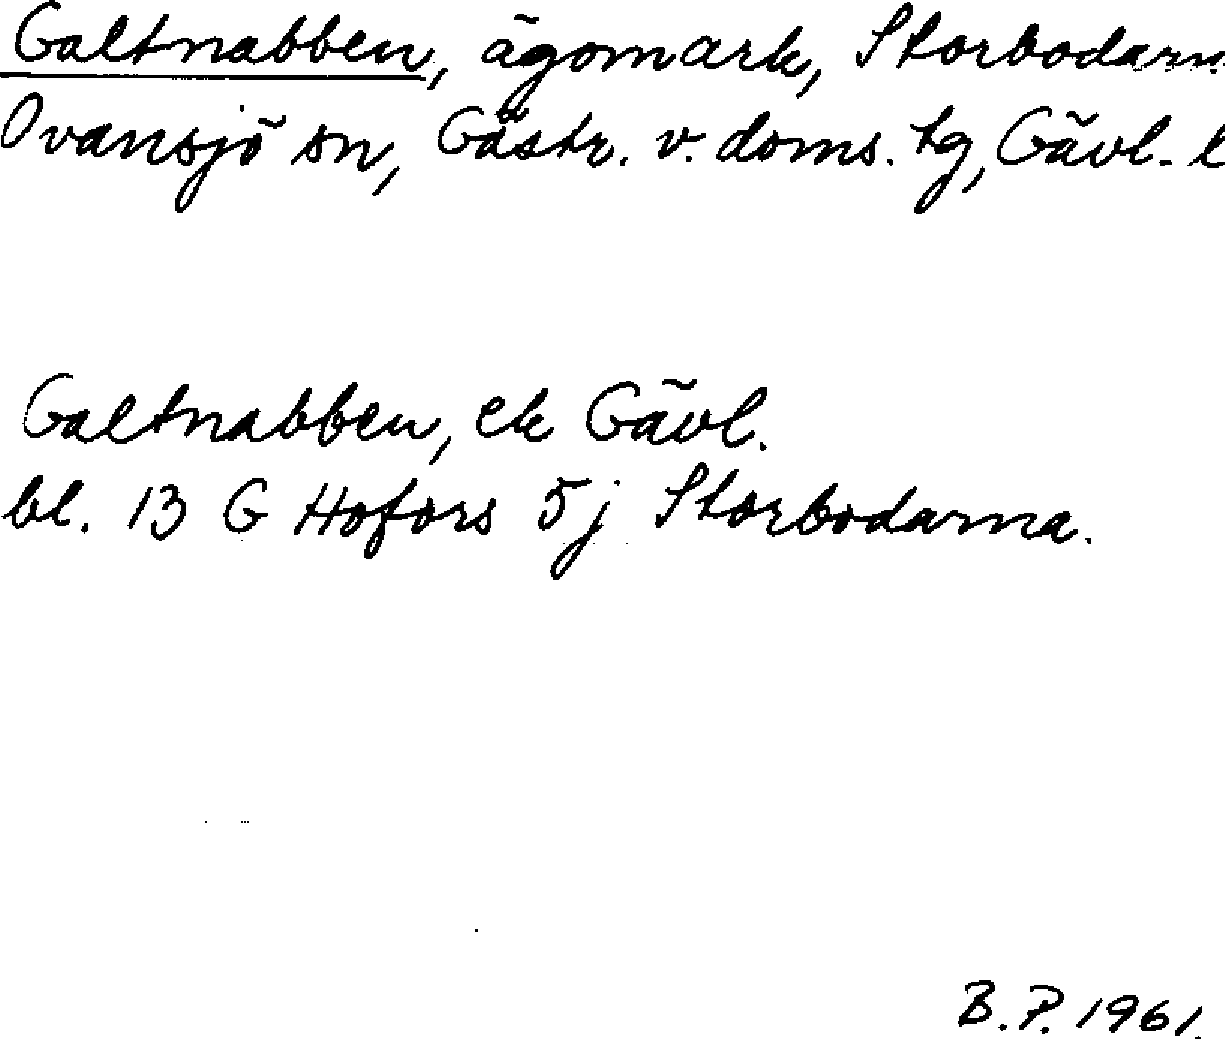 Galtnabben, ägomark, Storbodarn
Ovansjö sn, Gästr. v. doms. tg, Gävl. l
Galtnabben, ek Gävl.
bl. 13 G Hofors 5j Storbodarna.
B.P. 1961.